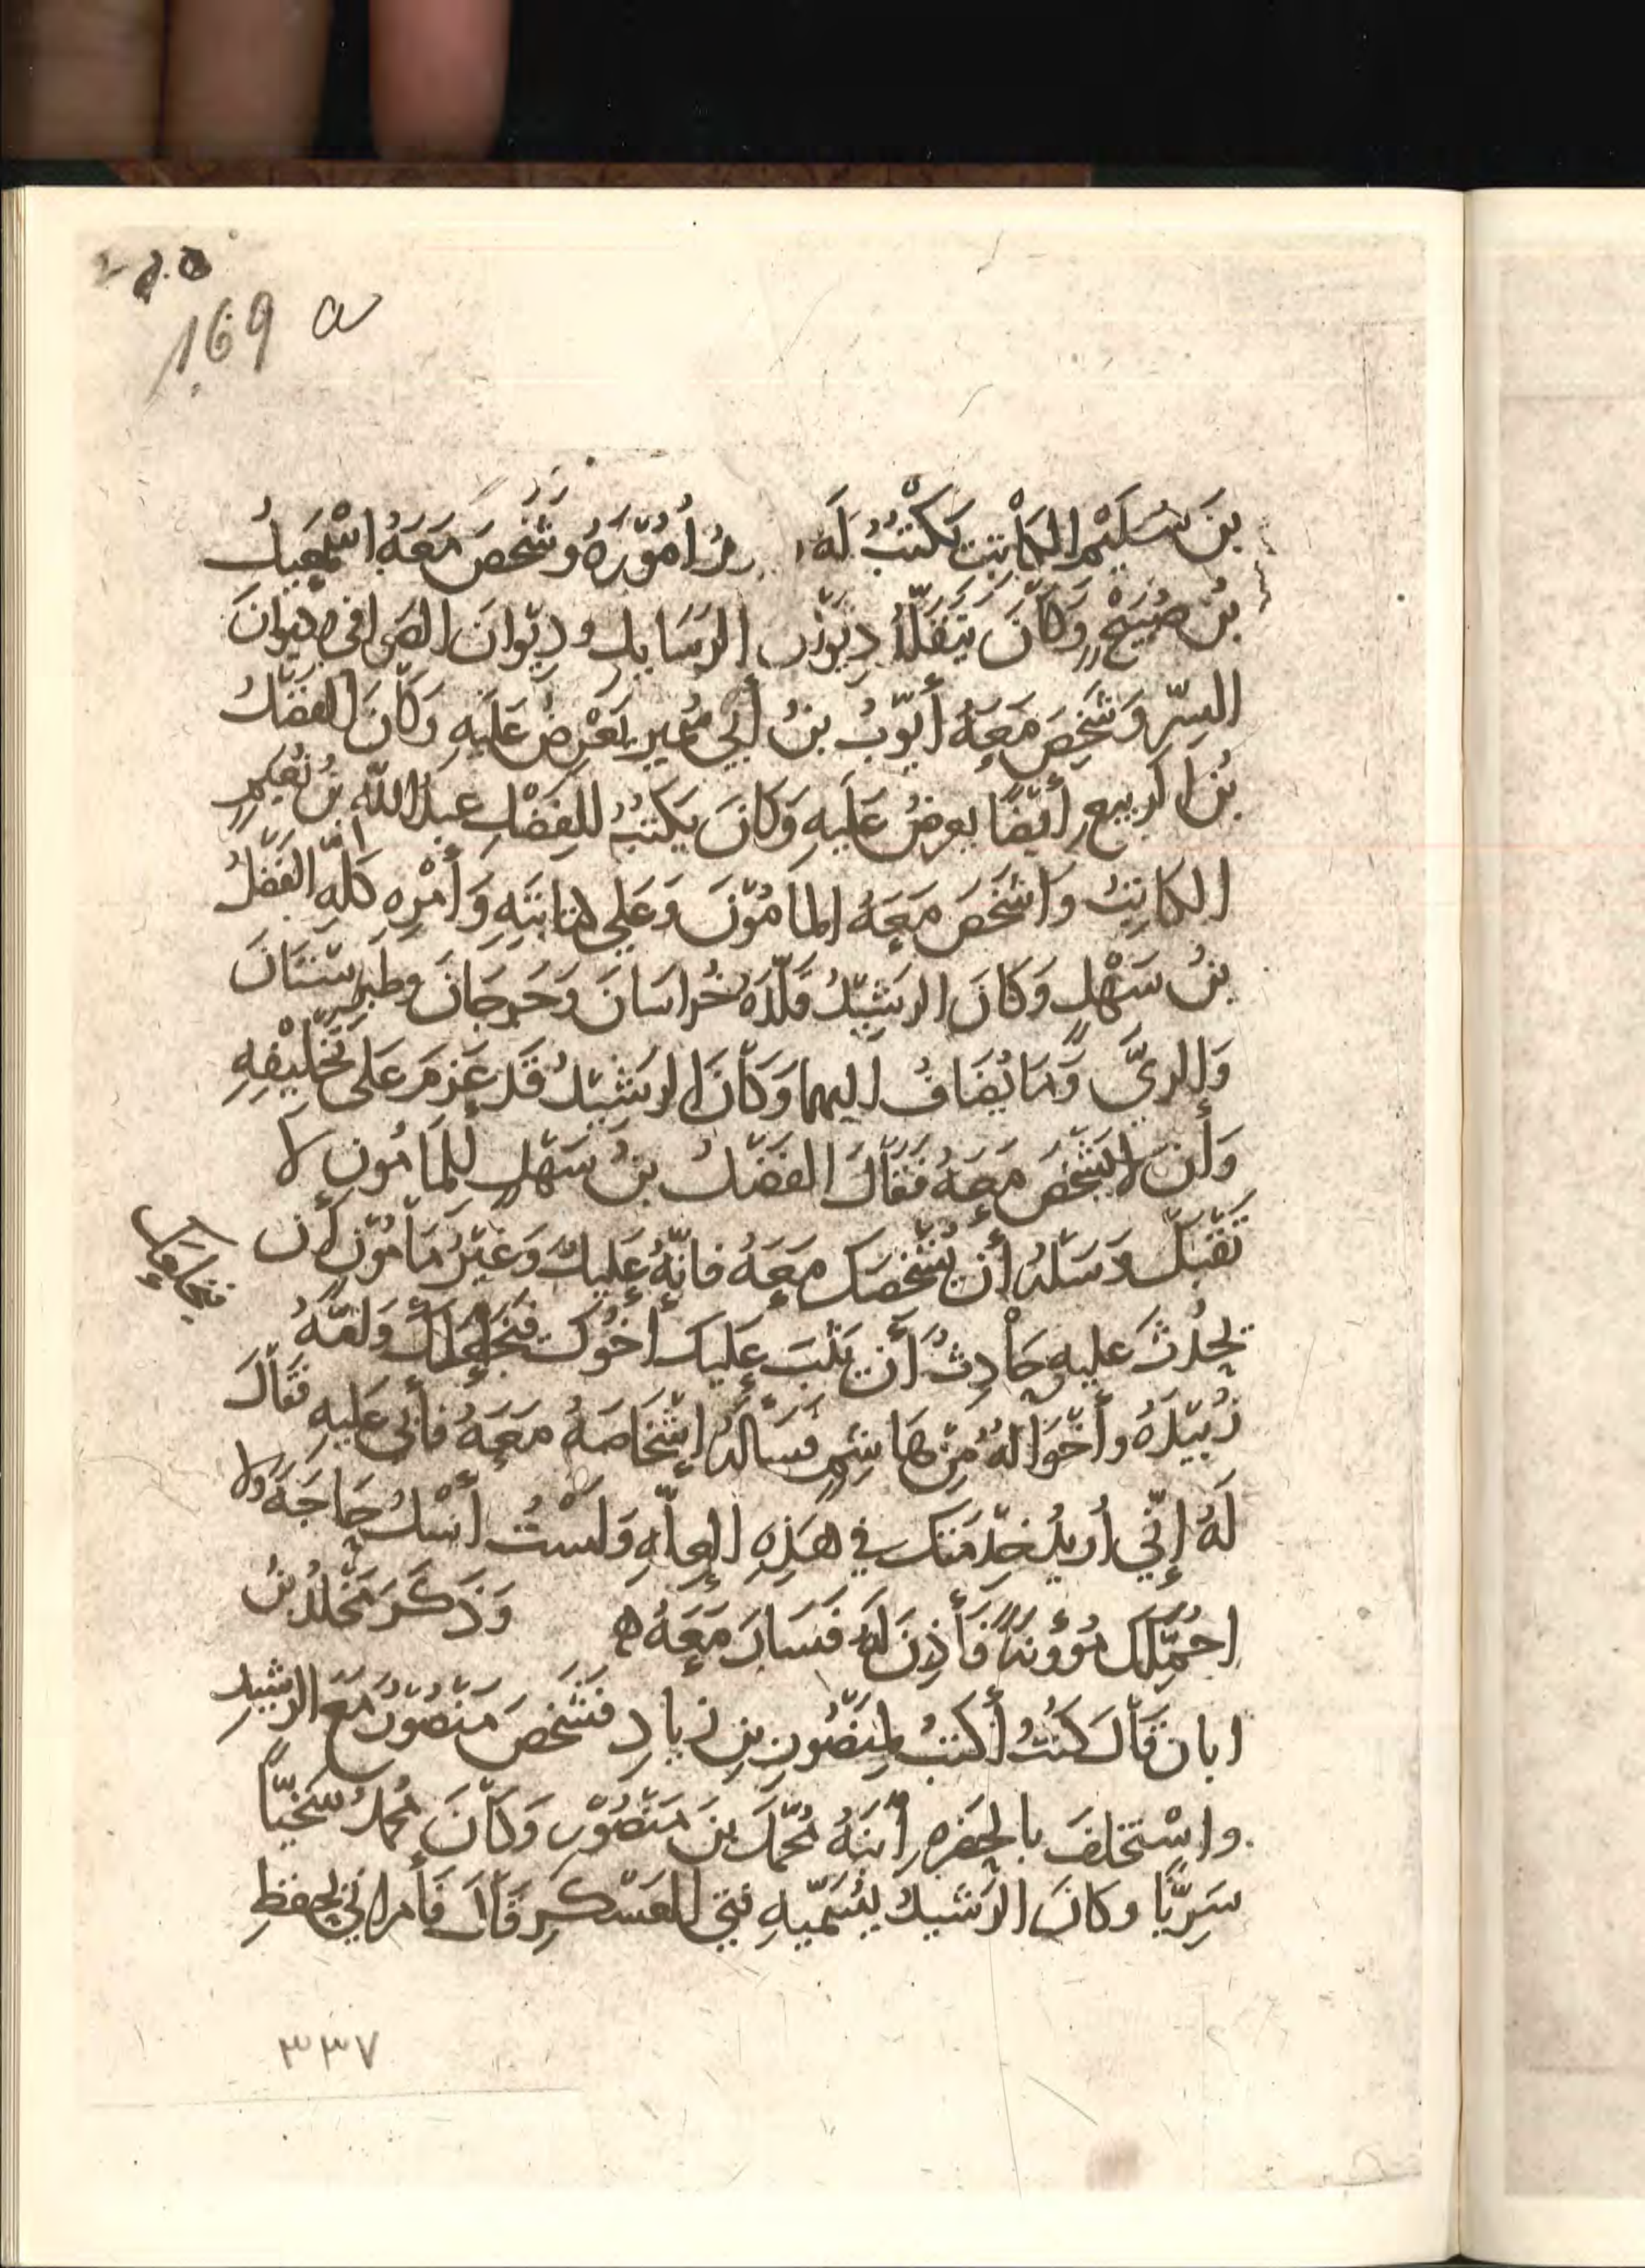 169 a
بنَ سُلَيْم الكَاتِبَ يَكْتُبُ لَهُ أُمُوْرَهُ وشَخَصَ مَعَهُ اسْمعِيلُ
بنُ صُبَيْحٍ وَكَانَ يَتَقَلَّدُ دِيْوَانَ الرَسَايلِ ودِيْوَانَ الصَوافي وديوانَ
السِرِّ وَشَخَصَ مَعَهُ أَيّوْبُ بنُ أَبِي سُمير يَعْرِضُ عَلَيهِ وَكَانَ الفَضْلُ
بنُ الرَبيع أَيْضًا يعرِضُ عَلَيهِ وَكَانَ يَكتبُ للفَضْلِ عبدُ اللّه بنُ نُعيمٍ
الكَاتِبُ وَاشخَصَ مَعَهُ المامُوْنَ وَعَلي كتابَتِهِ وَأَمْرِهِ كُلِّهِ الفَضْلُ
بنُ سَهْلٍ وَكَانَ الرَشِيْدُ قَلَّدَهُ خُراسَانَ وَجُرجَانَ وطَبرِسْتَانَ
وَالريَّ وَمَا يُضَافُ اليها وَكَانَ الرَشِيْدُ قَد عَزمَ عَلَى تَخْلِيْفِهِ
وَأَن لا يشخصَ مَعَهُ فَقَالَ الفَضْلُ بنُ سَهْلٍ لِلمَامُون لا
تَقْبَلْ وَسَلْهُ أَن يُشْخِصَكَ مَعَهُ فانّهُ عَلِيلٌ وَغَيْرُ مَامُوْنٍ أَن
يَحْدُثَ عَليهِ حَادِثٌ أَن يَثِبَ عَلَيكَ أَخُوْكَ فَيَخْلَعَكَ وَامّهُ
زُبَيْدَةُ وأَخْوَالُهُ مِنْ هَاشِمٍ فسَأَلَهُ اشْخَاصَهُ مَعَهُ فأَبَى عَلَيهِ فَقَالَ
لَهُ إِنّي اُريدُ خِدْمَتَكَ في هَذِهِ العِلَّهِ وَلَسْتُ أَسْلُ حَاجَةً ولا
احُمِّلُكَ مَؤُونَةً فَأَذِنَ لَهُ فَسَارَ مَعَهُ ه وَذَكَرَ مَخْلَدُ بنُ
ابان قَالَ كُنْتُ أَكتبُ لِمَنْصُورِ بنِ زِيادٍ فشَخَصَ مَنْصُوْرُ مَعَ الرشِيدِ
واسْتَخلَفَ بالحضَرهِ ابْنَهُ مُحَمَّدَ بنَ مَنْصُوْرٍ وَكَانَ مُحَمدُ سَخيّاً
سَرِيًّا وكَانَ الرَشيدُ يُسَمّيهِ فتى العَسْكرِ قَالَ فَأمراني بحفظِ
٣٣٧